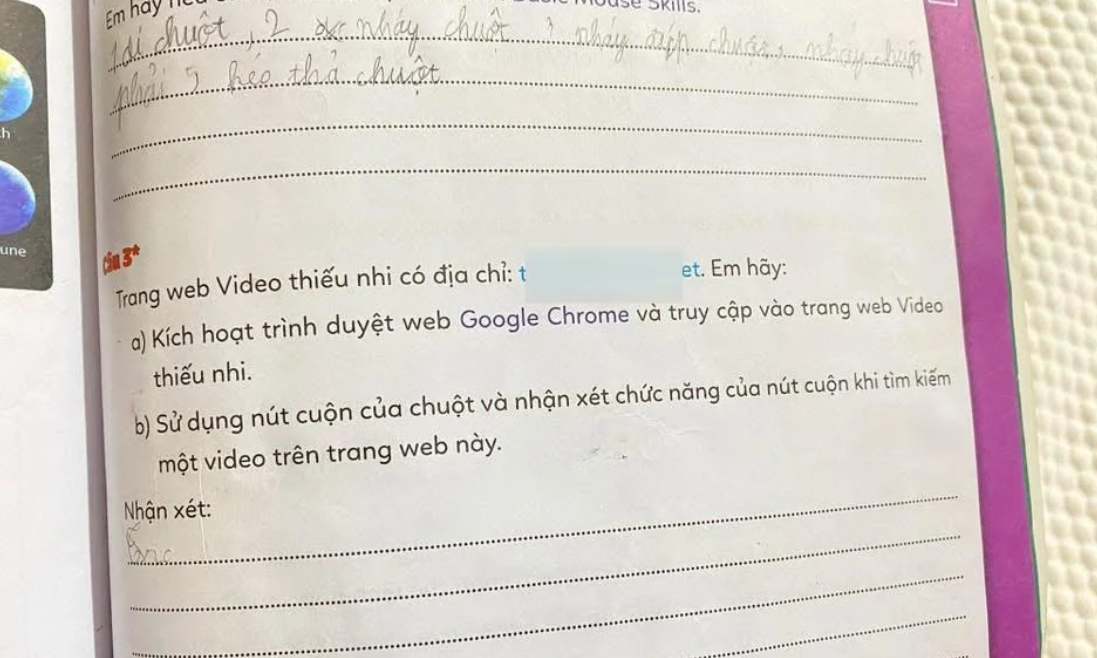 Em hãy
Mouse Skills.
1 di chuột, 2 nháy chuột 3 nháy đúp chuột, nháy chuột
phải 5 kéo thả chuột
h
une
Câu 3*
Trang web Video thiếu nhi có địa chỉ: t et. Em hãy:
a) Kích hoạt trình duyệt web Google Chrome và truy cập vào trang web Video
thiếu nhi.
b) Sử dụng nút cuộn của chuột và nhận xét chức năng của nút cuộn khi tìm kiếm
một video trên trang web này.
Nhận xét: